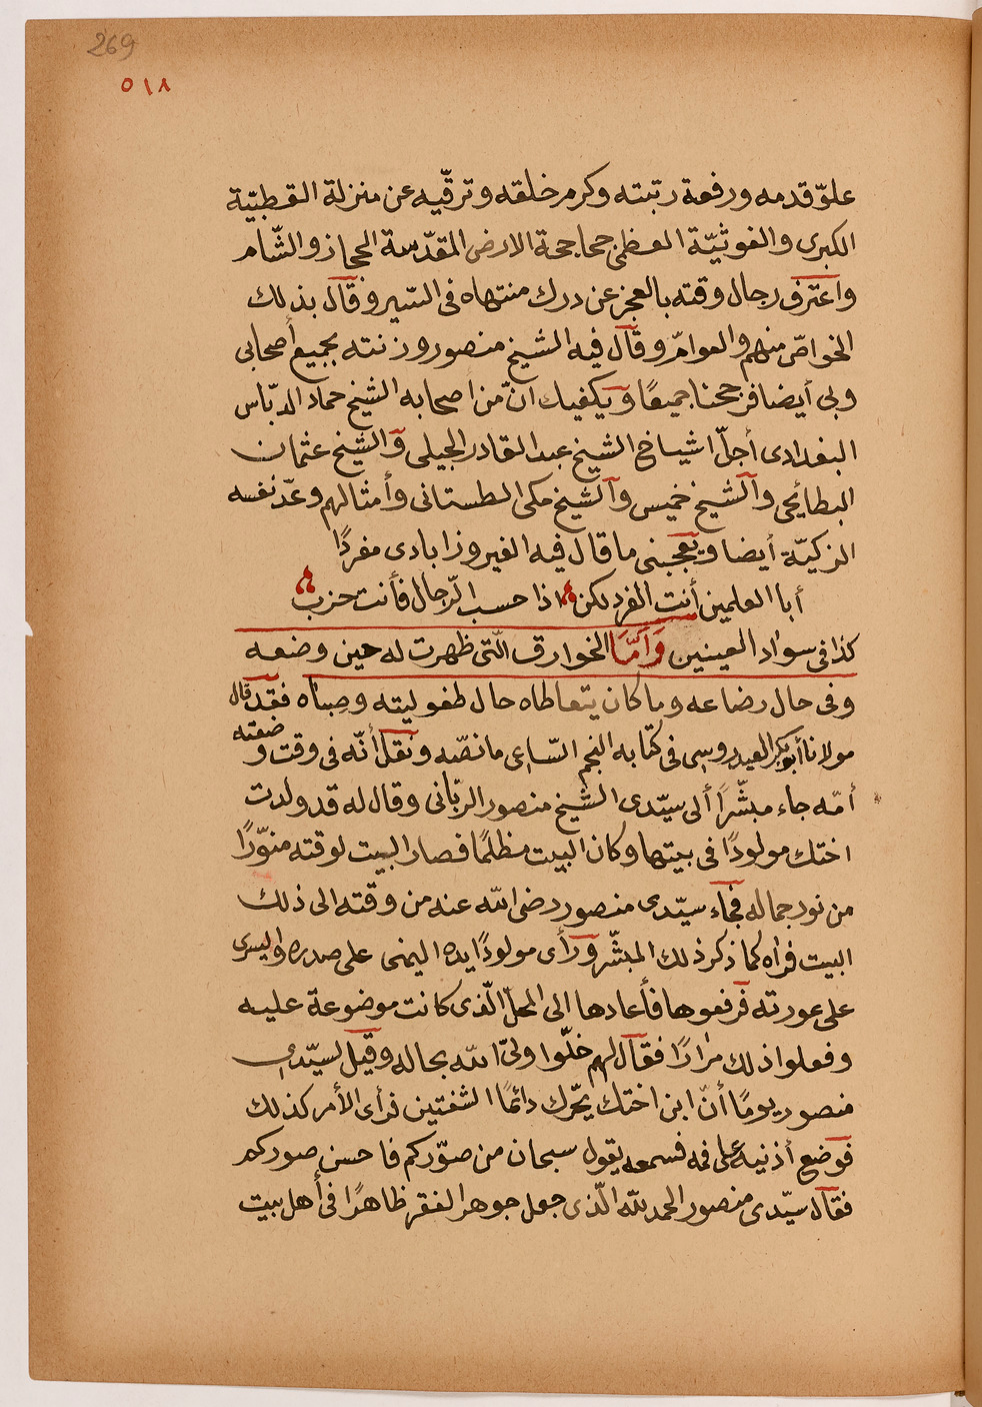 269
٥١٨
علوّ قدمه ورفعة رتبته وكرم خلقه وترقّيه عن منزلة القطبيّة
الكبرى والغوثيّة العظمى جحاجحة الارض المقدّسة الحجاز والشّام
واعترف رجال وقته بالعجز عن درك منتهاه فى السّير وقال بذلك
الخواصّ منهم والعوامّ وقال فيه الشيخ منصور وزنته بجميع أصحابى
وبى أيضا فرجحنا جميعًا ويكفيك انّ من أصحابه الشيخ حماد الدبّاس
البغدادى أجلّ اشياخ الشيخ عبد القادر الجيلى والشيخ عثمان
البطائحى والشيخ خميس والشيخ مكى الطستانى وأمثالهم وعدّ نفسه
الزكيّة أيضا ويعجبنى ما قال فيه الفيروزابادى مفردًا
أبا العلمين أنت الفرد لكن ، اذا حسب الرّجال فأنت حزب
كذا فى سواد العينين وَأمَّا الخوارق الّتى ظهرت له حين وضعه
وفى حال رضاعه وما كان يتعاطاه حال طفوليته وصباه فقد قال
مولانا أبو بكر العيدروسى فى كتابه النجم السّاعى ما نصّه ونقل أنّه فى وقت وضعته
أمّه جاء مبشّرًا ألى سيّدى الشّيخ منصور الربّانى وقال له قد ولدت
اختك مولودًا فى بيتها وكان البيت مظلمًا فصار البيت لوقته منوّرًا
من نور جماله فجاء سيّدى منصور رضى الله عنه من وقته الى ذلك
البيت فراه كما ذكر ذلك المبشّر ورأى مولودًا يده اليمنى على صدره واليسرى
على عورته فرفعوها فأعادها الى المحلّ الّذى كانت موضوعة عليه
وفعلوا ذلك مرارًا فقال لهم خلّوا ولىّ الله بحاله وقيل لسيّدى
منصور يومًا أنّ ابن اختك يحّرك دائمًا الشفتين فرأى الأمر كذلك
فوضع أذنيه على فمه فسمعه يقول سبحان من صوّركم فاحسن صوركم
فقال سيّدى منصور الحمد لله الّذى جعل جوهر الفقر ظاهرًا فى أهل بيت